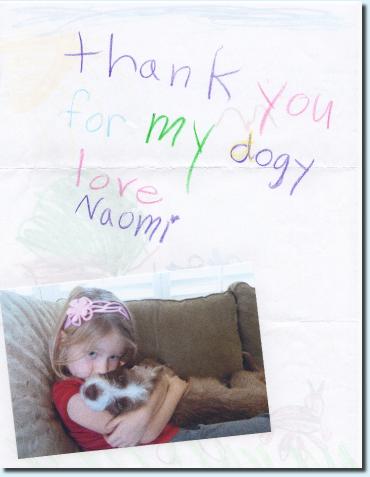 thank you
for my dogy
love
Naomi